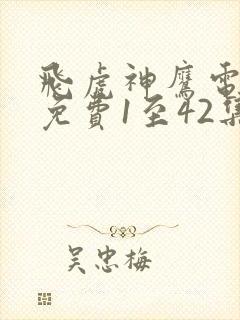 飛虎神鷹電
免費1至42集
吴忠梅